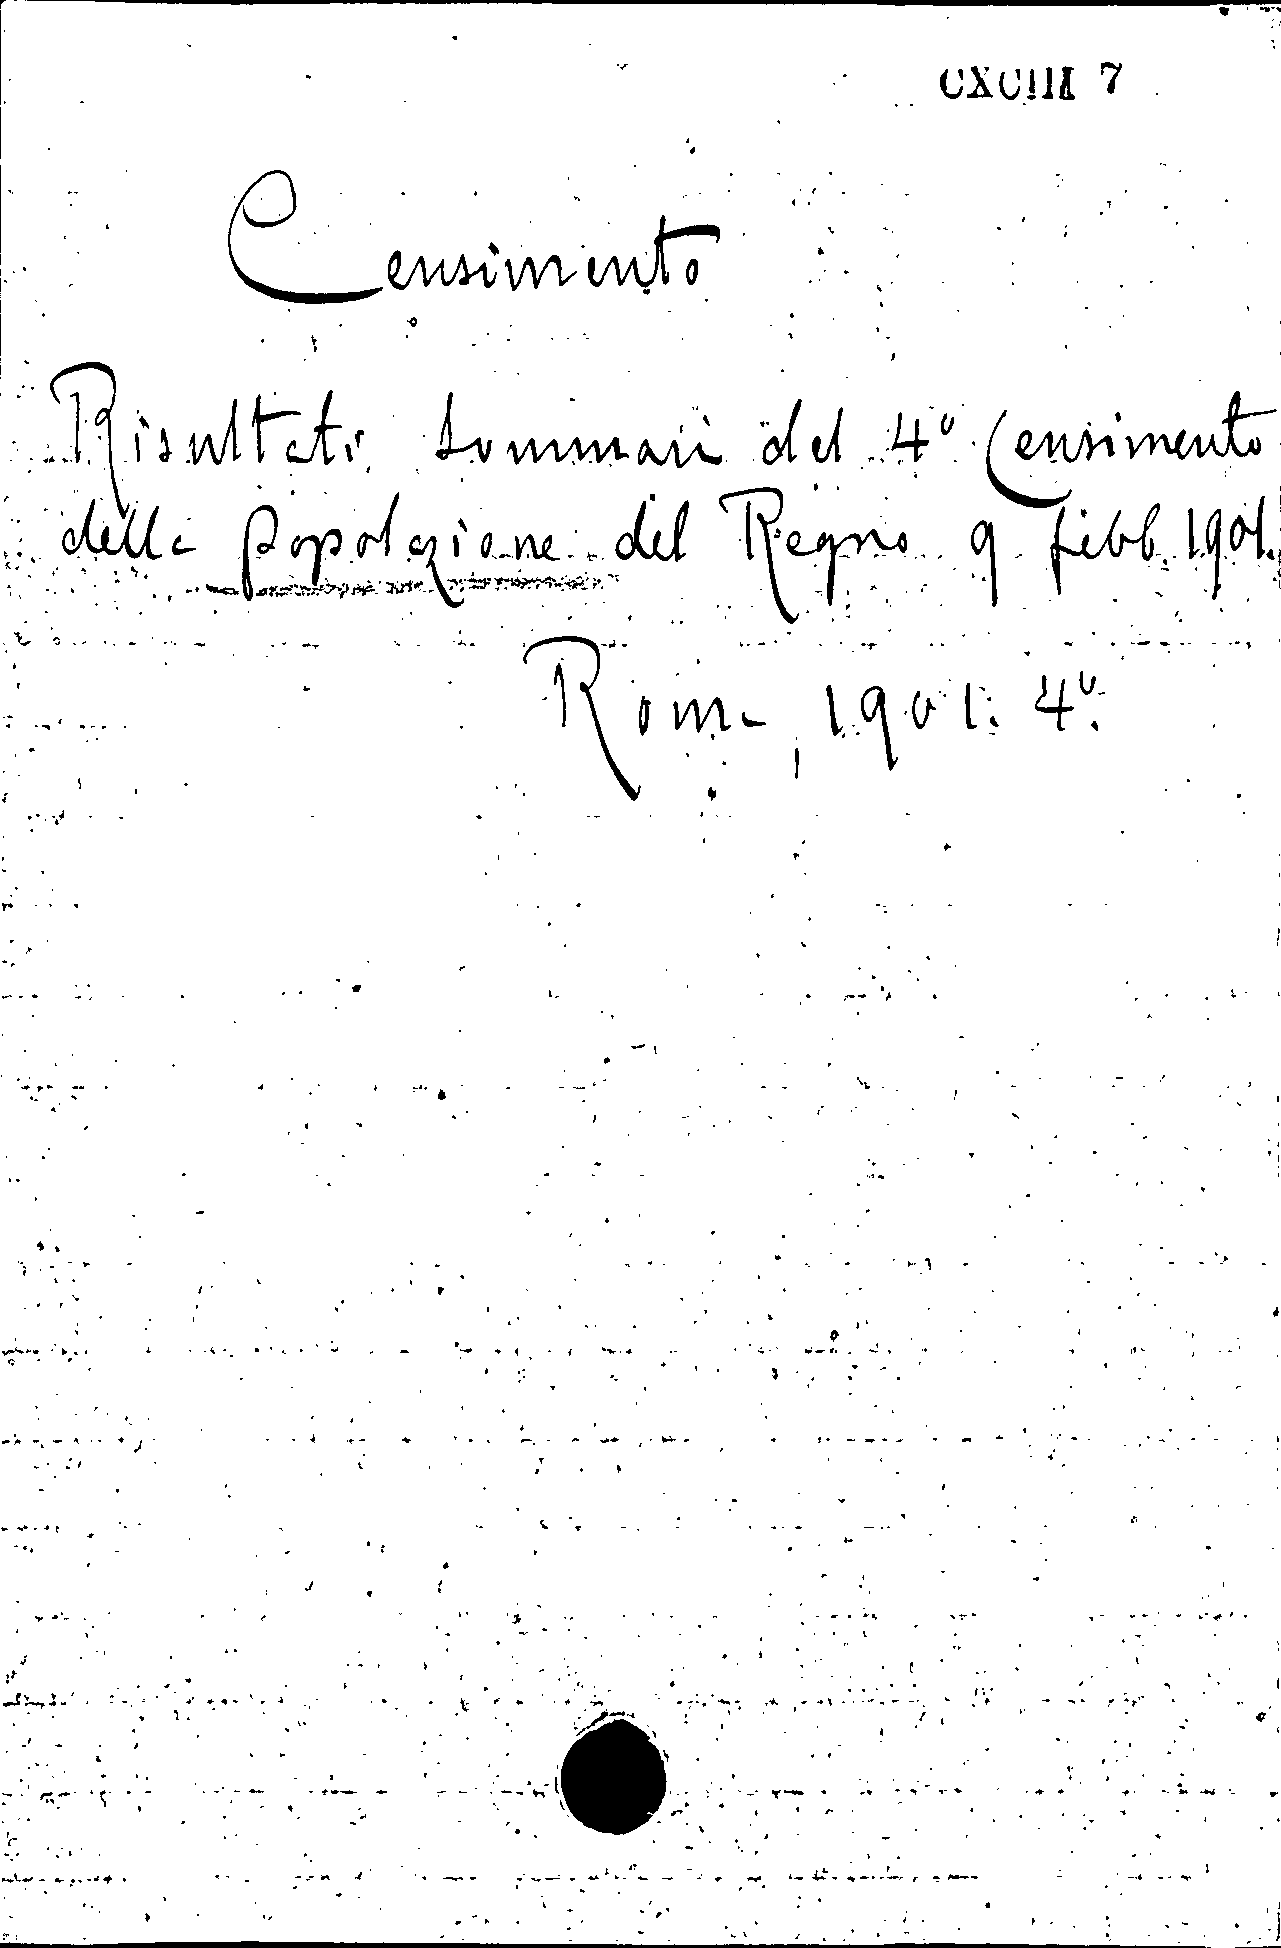 CXCIII 7
Censimento
Risultati sommari del 4º Censimento
della popolazione del Regno 9 febb. 1901.
Roma, 1901. 4º.